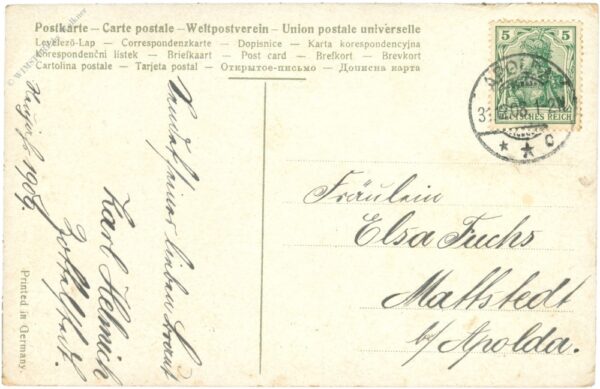 Postkarte - Carte postale - Weltpostverein - Union postale universelle
Levelező-Lap - Correspondenzkarte - Dopisnice - Karta korespondencyjna
Korespondenční lístek - Briefkaart - Post card - Brefkort - Brevkort
Cartolina postale - Tarjeta postal - Открытое-письмо - Дописна карта
5 5
DEUTSCHES REICH
APOLDA
31.12.08. 1-2N
* * c
Fräulein
Elsa Fuchs
Mattstedt
b/ Apolda.
seiner lieben Braut
Karl Helmrich
1909.
Printed in Germany.